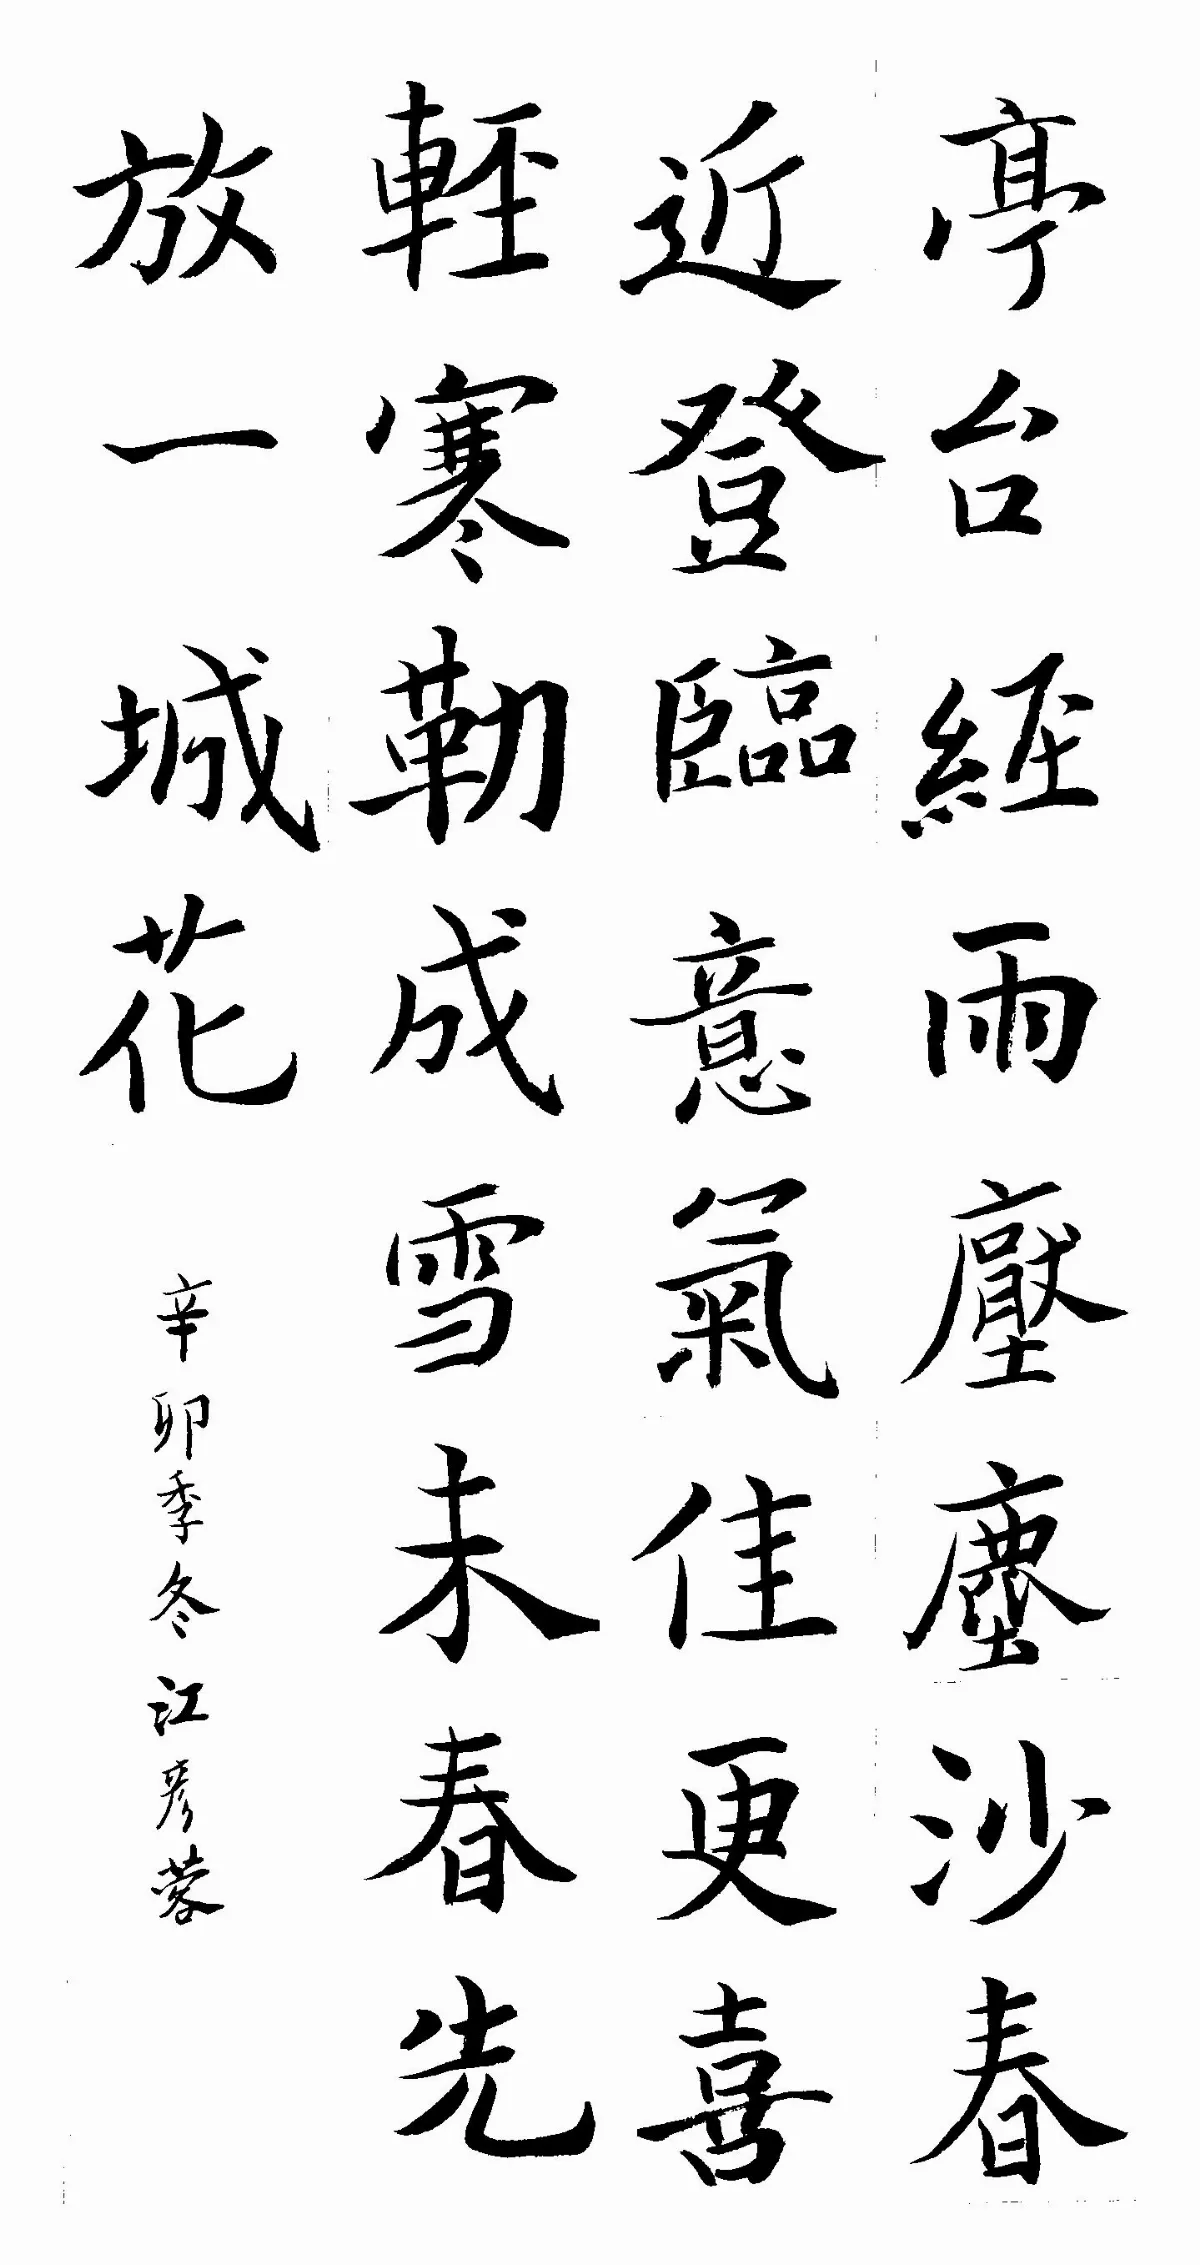 亭台經雨壓塵沙春
近登臨意氣佳更喜
輕寒勒成雪未春先
放一城花
辛卯季冬江彦蓉